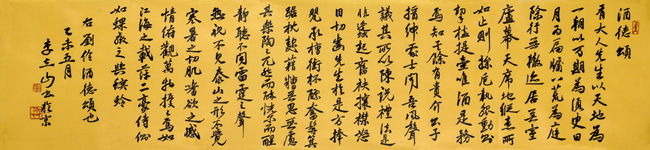 酒德頌
有大人先生以天地為
一朝以万期為須臾日
月為扃牖以八荒為庭
除行無轍迹居無室
廬幕天席地縱意所
如止則操卮執觚動則
挈榼提壺唯酒是務
焉知其餘有貴介公子
搢紳處士聞吾風聲
議其所以陳說禮法是
非鋒起奮袂攘襟怒
目切齒先生於是方捧
甖承槽銜杯漱醪奮髯箕
踞枕麴藉糟無思無慮
其樂陶陶兀然而醉恍爾而醒
靜聽不聞雷霆之聲
熟視不見泰山之形不覺
寒暑之切肌嗜欲之感
情俯觀萬物擾擾焉如
江海之載萍二豪侍側
如蜾蠃之與螟蛉
右劉伶酒德頌也
乙未五月
李立山書於京